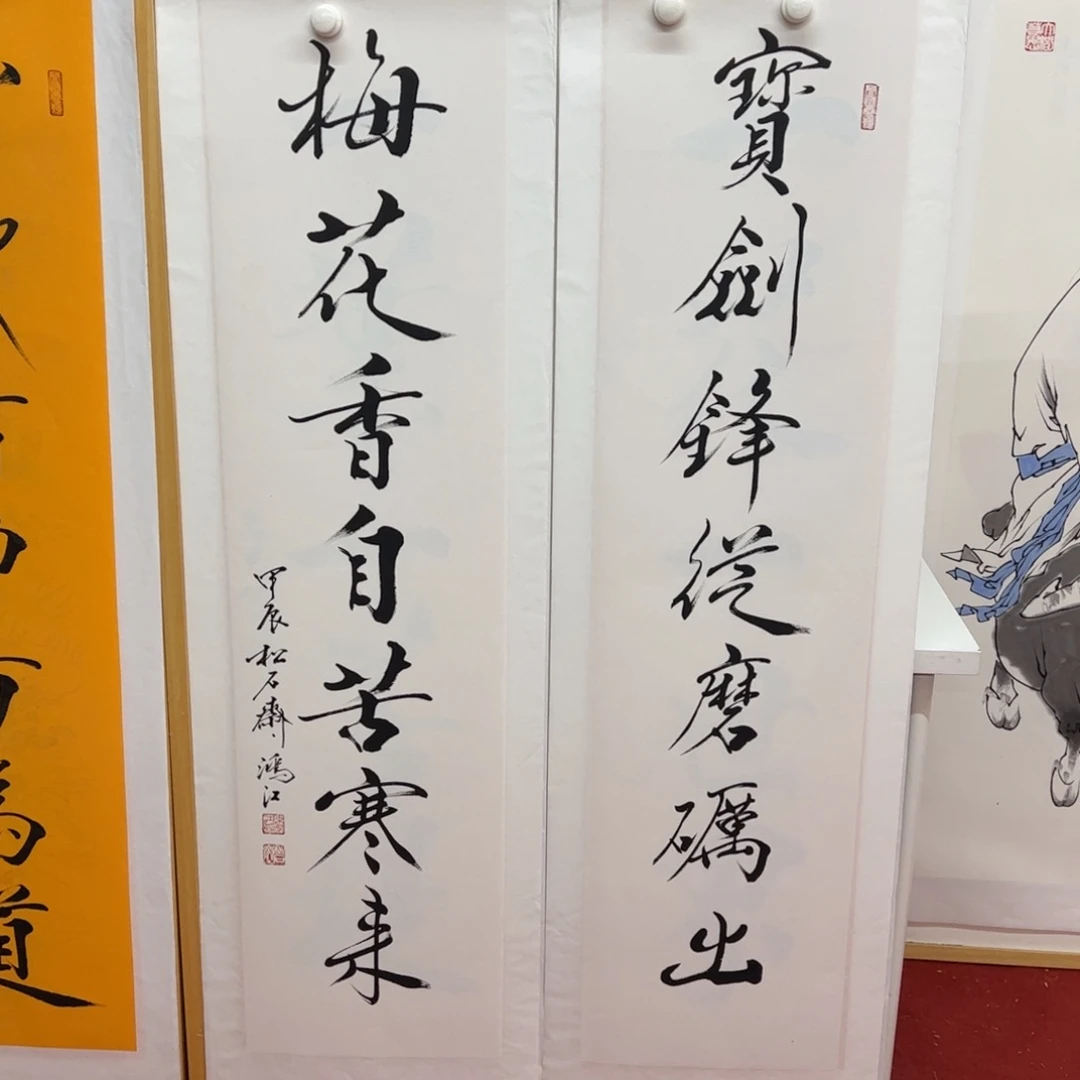 寶劍鋒從磨礪出
梅花香自苦寒来
甲辰松石齋鴻江
為道